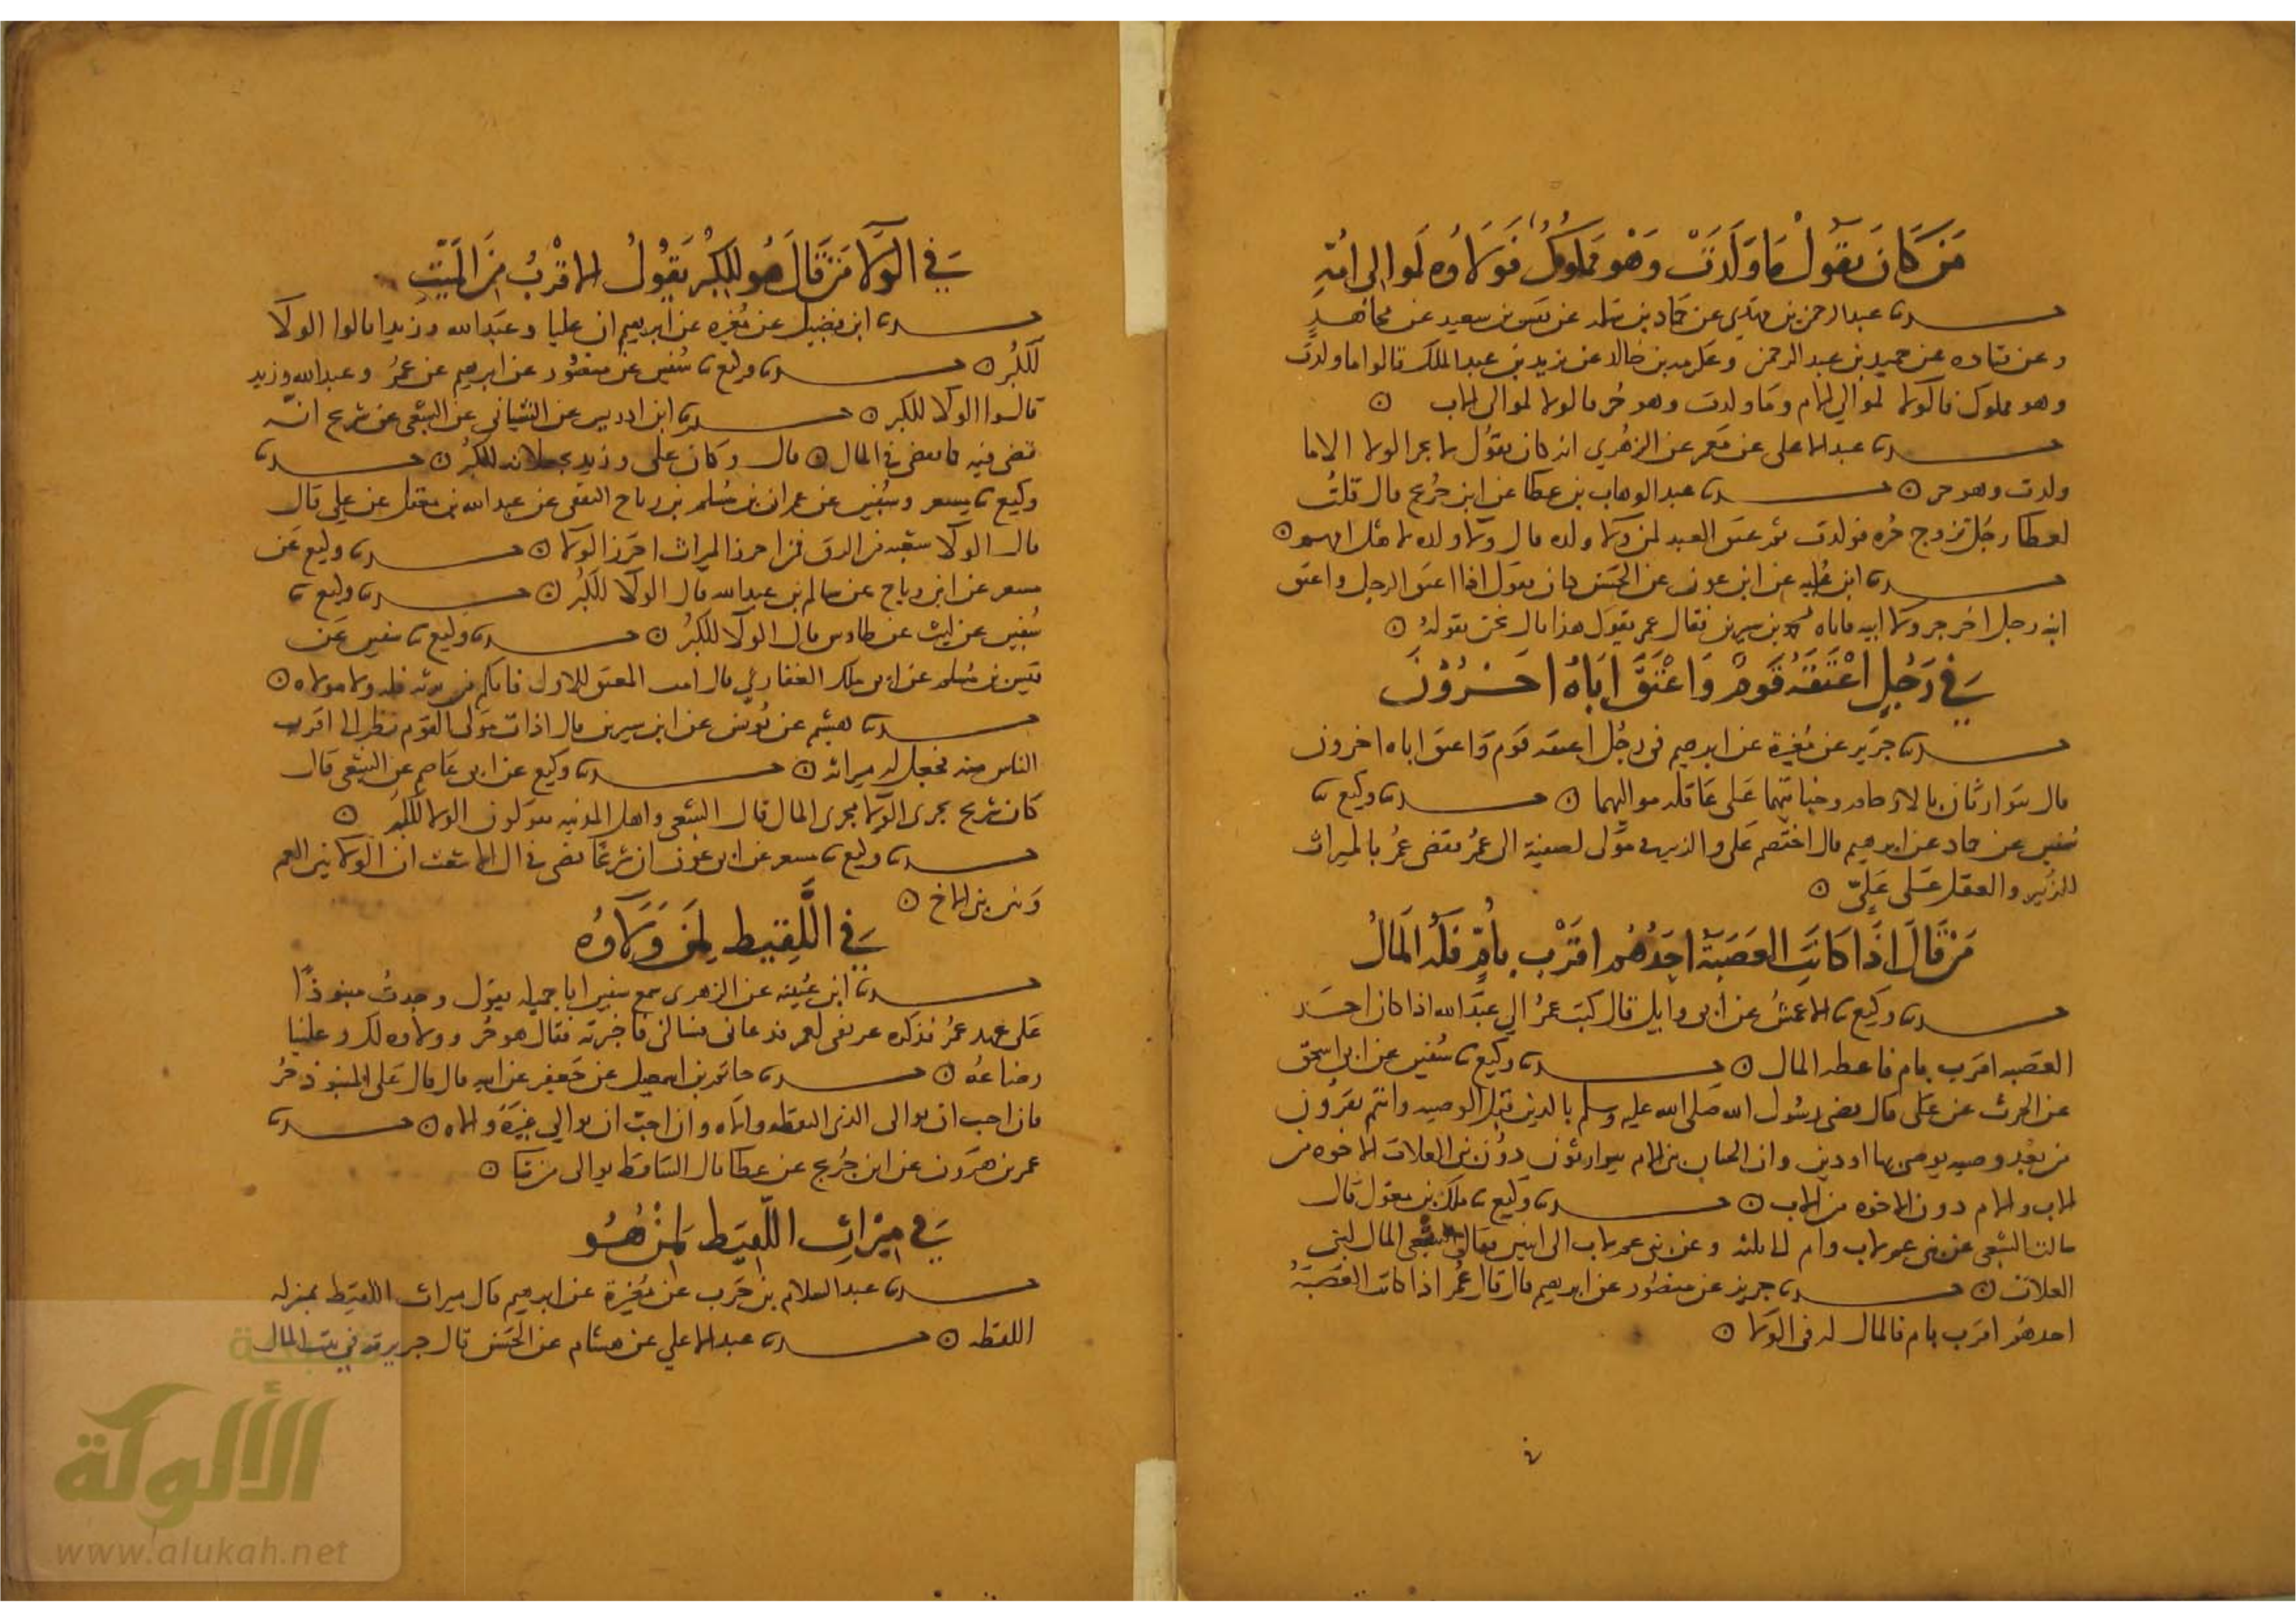 من كان يقول ما ولدت وهو مملوك فولاوه لموالي امه
حدثنا عبد الرحمن بن مهدي عن حماد بن سلمه عن قيس بن سعيد عن مجاهد
وعن قتاده عن حميد بن عبد الرحمن وعكرمه بن خالد عن يزيد بن عبد الملك قالوا ما ولدت
وهو مملوك فالولا لموالي الام وما ولدت وهو حر فالولا لموالي الاب ن
حدثنا عبد الاعلى عن معمر عن الزهري انه كان يقول لا يجر الولا الا ما
ولدت وهو حر ن حدثنا عبد الوهاب بن عطا عن ابن جريج قال قلت
لعطا رجل تزوج حره فولدت ثم عتق العبد لمن ولا ولده قال ولا ولده لاهل امهم ن
حدثنا ابن عليه عن ابن عون عن الحسن كان يقول اذا اعتق الرجل واعتق
ابنه رجل اخر جر ولا ابيه فاتاه بن سيرين فقال عمر يقول هذا قال نحن نقوله ن
في رجل اعتقه قوم واعتق اباه اخرون
حدثنا جرير عن مغيرة عن ابرهيم في رجل اعتقه قوم واعتق اباه اخرون
قال يتوارثان بالارحام وجنايتهما على عاقله مواليهما ن حدثنا وكيع نا
سفين عن حماد عن ابرهيم قال اختصم علي والزبير في مولى لصفية الى عمر فقضى عمر بالميراث
للزبير والعقل على علي ن
من قال اذا كانت العصبة احدهم اقرب بام فله المال
حدثنا وكيع نا الاعمش عن ابي وايل قال كتب عمر الي عبد الله اذا كان احد
العصبه اقرب بام فاعطه المال ن حدثنا وكيع نا سفين عن ابي اسحق
عن الحرث عن علي قال قضى رسول الله صلى الله عليه وسلم بالدين قبل الوصيه وانتم تقرون
من بعد وصيه يوصى بها او دين وان اعيان بني الام يتوارثون دون بني العلات الاخوه من
الاب والام دون الاخوه من الاب ن حدثنا وكيع نا ملك بن مغول قال
سالت الشعبي عن بني عم لاب وام الى ثلثه وعن بني عم لاب الى اثنين فقال الشعبي المال لبني
العلات ن حدثنا جرير عن منصور عن ابرهيم قال قال عمر اذا كانت العصبة
احدهم اقرب بام فالمال له في الولا ن
في الولا من قال هو للكبر يقول الاقرب من الميت
حدثنا ابن فضيل عن مغيره عن ابرهيم ان عليا وعبد الله وزيدا قالوا الولا
للكبر ن حدثنا وكيع نا سفين عن منصور عن ابرهيم عن عمر وعبد الله وزيد
قالوا الولا للكبر ن حدثنا ابن ادريس عن الشيباني عن الشعبي عن شريح انه
قضى فيه كما قضى في المال ن قال وكان علي وزيد يجعلانه للكبر ن حدثنا
وكيع نا مسعر وسفين عن عمران بن مسلم بن رياح الثقفي عن عبد الله بن معقل عن علي قال
قال الولا شعبه من الرق فمن احرز الميراث احرز الولا ن حدثنا وكيع عن
مسعر عن ابن رباح عن سالم بن عبد الله قال الولا للكبر ن حدثنا وكيع نا
سفين عن ليث عن طاوس قال الولا للكبر ن حدثنا وكيع نا سفين عن
قيس بن مسلم عن ابي ملك الغفاري قال المعتق للاول فايكم يرثه فله ولا مولاه ن
حدثنا هشيم عن يونس عن ابن سيرين قال اذا مات مولى القوم نظر الى اقرب
الناس منه فجعل له ميراثه ن حدثنا وكيع عن ابي عاصم عن الشعبي قال
كان شريح يجرى الولا مجرى المال قال الشعبي واهل المدينه يقولون الولا للكبر ن
حدثنا وكيع نا مسعر عن ابي عون ان شريحا قضى في ال الاشعث ان الولا بين العم
وبين بني الاخ ن
في اللقيط لمن ولاوه
حدثنا ابن عيينه عن الزهرى سمع سنين ابا جميله يقول وجدت منبوذا
على عهد عمر فذكره عريفي لعمر فدعاني فسالني فاخبرته فقال هو حر وولاوه لك وعلينا
رضاعه ن حدثنا حاتم بن اسمعيل عن جعفر عن ابيه قال قال علي المنبوذ حر
فان احب ان يوالي الذي التقطه والاه وان احب ان يوالي غيره والاه ن حدثنا
عمر بن هرون عن ابن جريج عن عطا قال الساقط يوالي من شا ن
في ميراث اللقيط لمن هو
حدثنا عبد السلام بن حرب عن مغيرة عن ابرهيم قال ميراث اللقيط بمنزله
اللقطه ن حدثنا عبد الاعلي عن هشام عن الحسن قال جريرته في بيت المال
شبكة
الألوكة
www.alukah.net